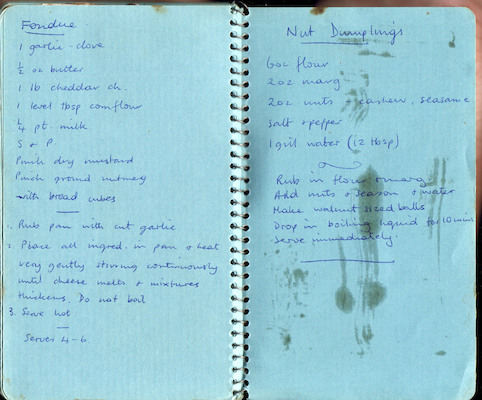 Fondue
1 garlic clove
½ oz butter
1 lb cheddar ch.
1 level tbsp cornflour
¼ pt. milk
S & P.
Pinch dry mustard
Pinch ground nutmeg
with bread cubes
1. Rub pan with cut garlic
2. Place all ingred. in pan & heat
very gently stirring continuously
until cheese melts & mixtures
thickens. Do not boil
3. Serve hot
Serves 4-6.
Nut Dumplings
6oz flour.
2oz marg
2oz nuts & cashew, seasame
Salt & pepper
1 gill water (12 tbsp)
Rub in flour & marg.
Add nuts & season & water
Make walnut sized balls
Drop in boiling liquid for 10 mins
Serve immediately.